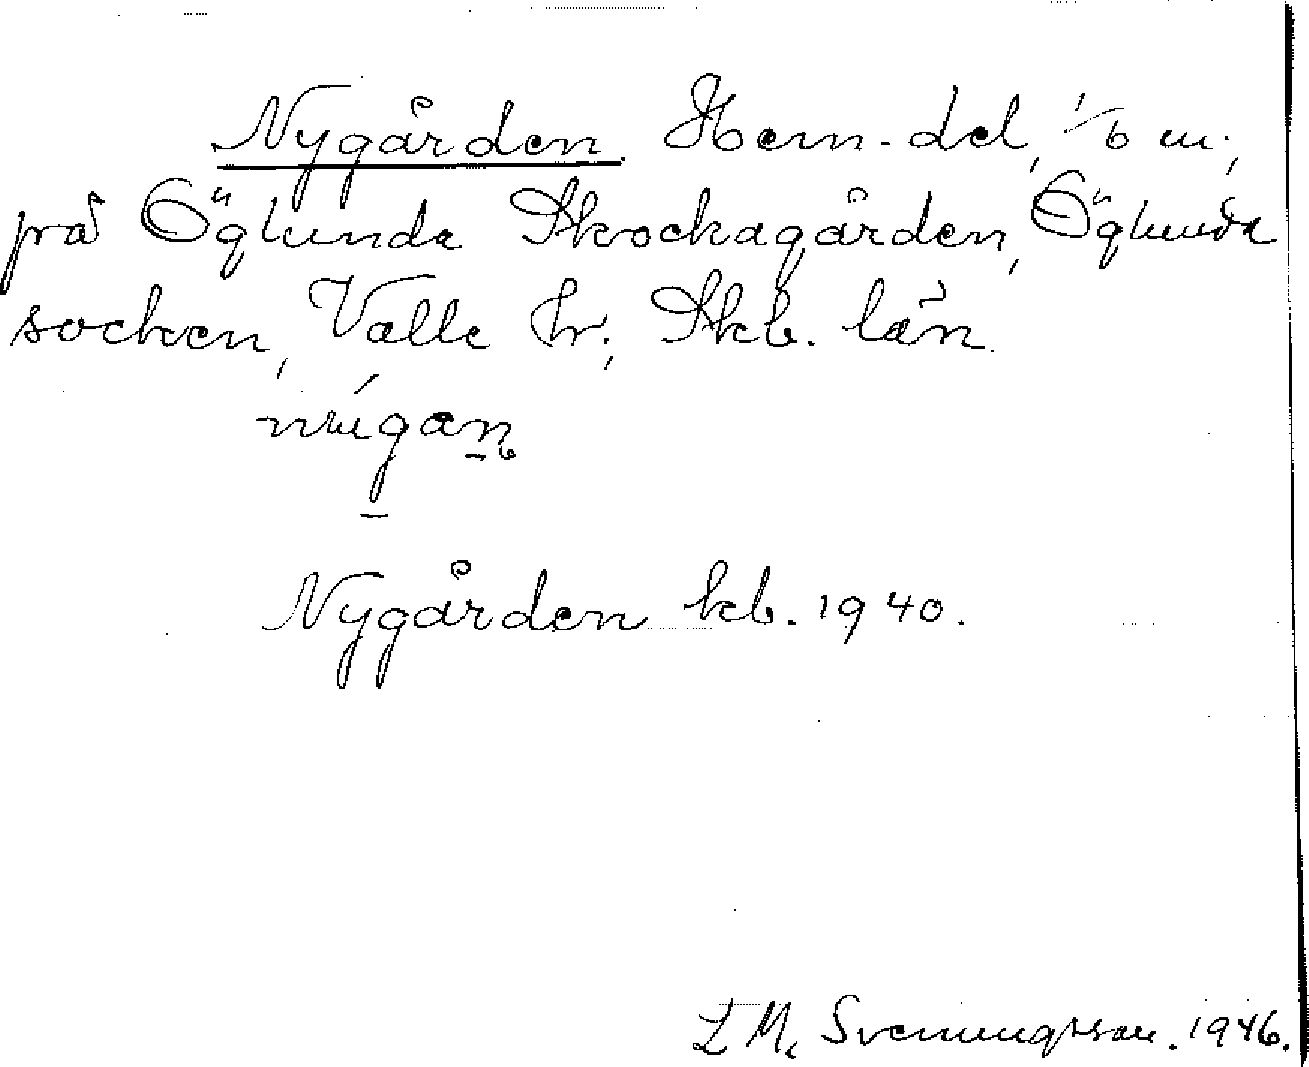 Nygården Hem.-del, 1/6 m.,
på Öglunda Skockagården, Öglunda
socken, Valle hr., Skb. län.
Nygården kb. 1940.
L M. Svenungsson. 1946.